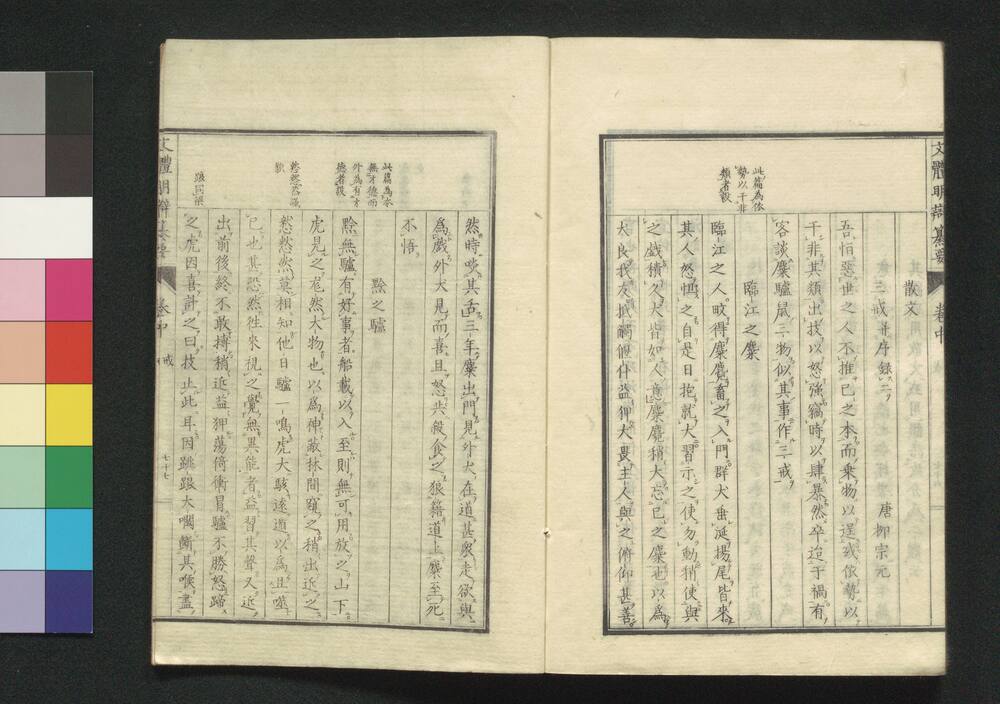 文體明辯纂要
卷中
散文
三戒并序 錄二
唐柳宗元
吾恒惡世之人不推己之本而乘物以逞或依勢以
干非其類出技以怒強竊時以肆暴然卒迨于禍有
客談麋驢鼠三物似其事作三戒
臨江之麋
此篇為依
勢以干非
類者設
臨江之人畋得麋麑畜之入門群犬垂涎揚尾皆來
其人怒怛之自是日抱就犬習示之使勿動稍使與
之戲積久犬皆如人意麋麑稍大忘己之麋也以為
犬良我友抵觸偃仆益狎犬畏主人與之俯仰甚善
然時啖其舌三年麋出門見外犬在道甚眾走欲與
為戲外犬見而喜且怒共殺食之狼籍道上麋至死
不悟
黔之驢
此篇為本
無才德而
外為有才
德者設
黔無驢有好事者船載以入至則無可用放之山下
虎見之尨然大物也以為神蔽林間窺之稍出近之
憖憖然莫相知他日驢一鳴虎大駭遠遁以為且噬
己也甚恐然往來視之覺無異能者益習其聲又近
出前後終不敢搏稍近益狎蕩倚衝冒驢不勝怒蹄
之虎因喜計之曰技止此耳因跳踉大㘚斷其喉盡
文體明辯纂要
卷中
戒
七十七